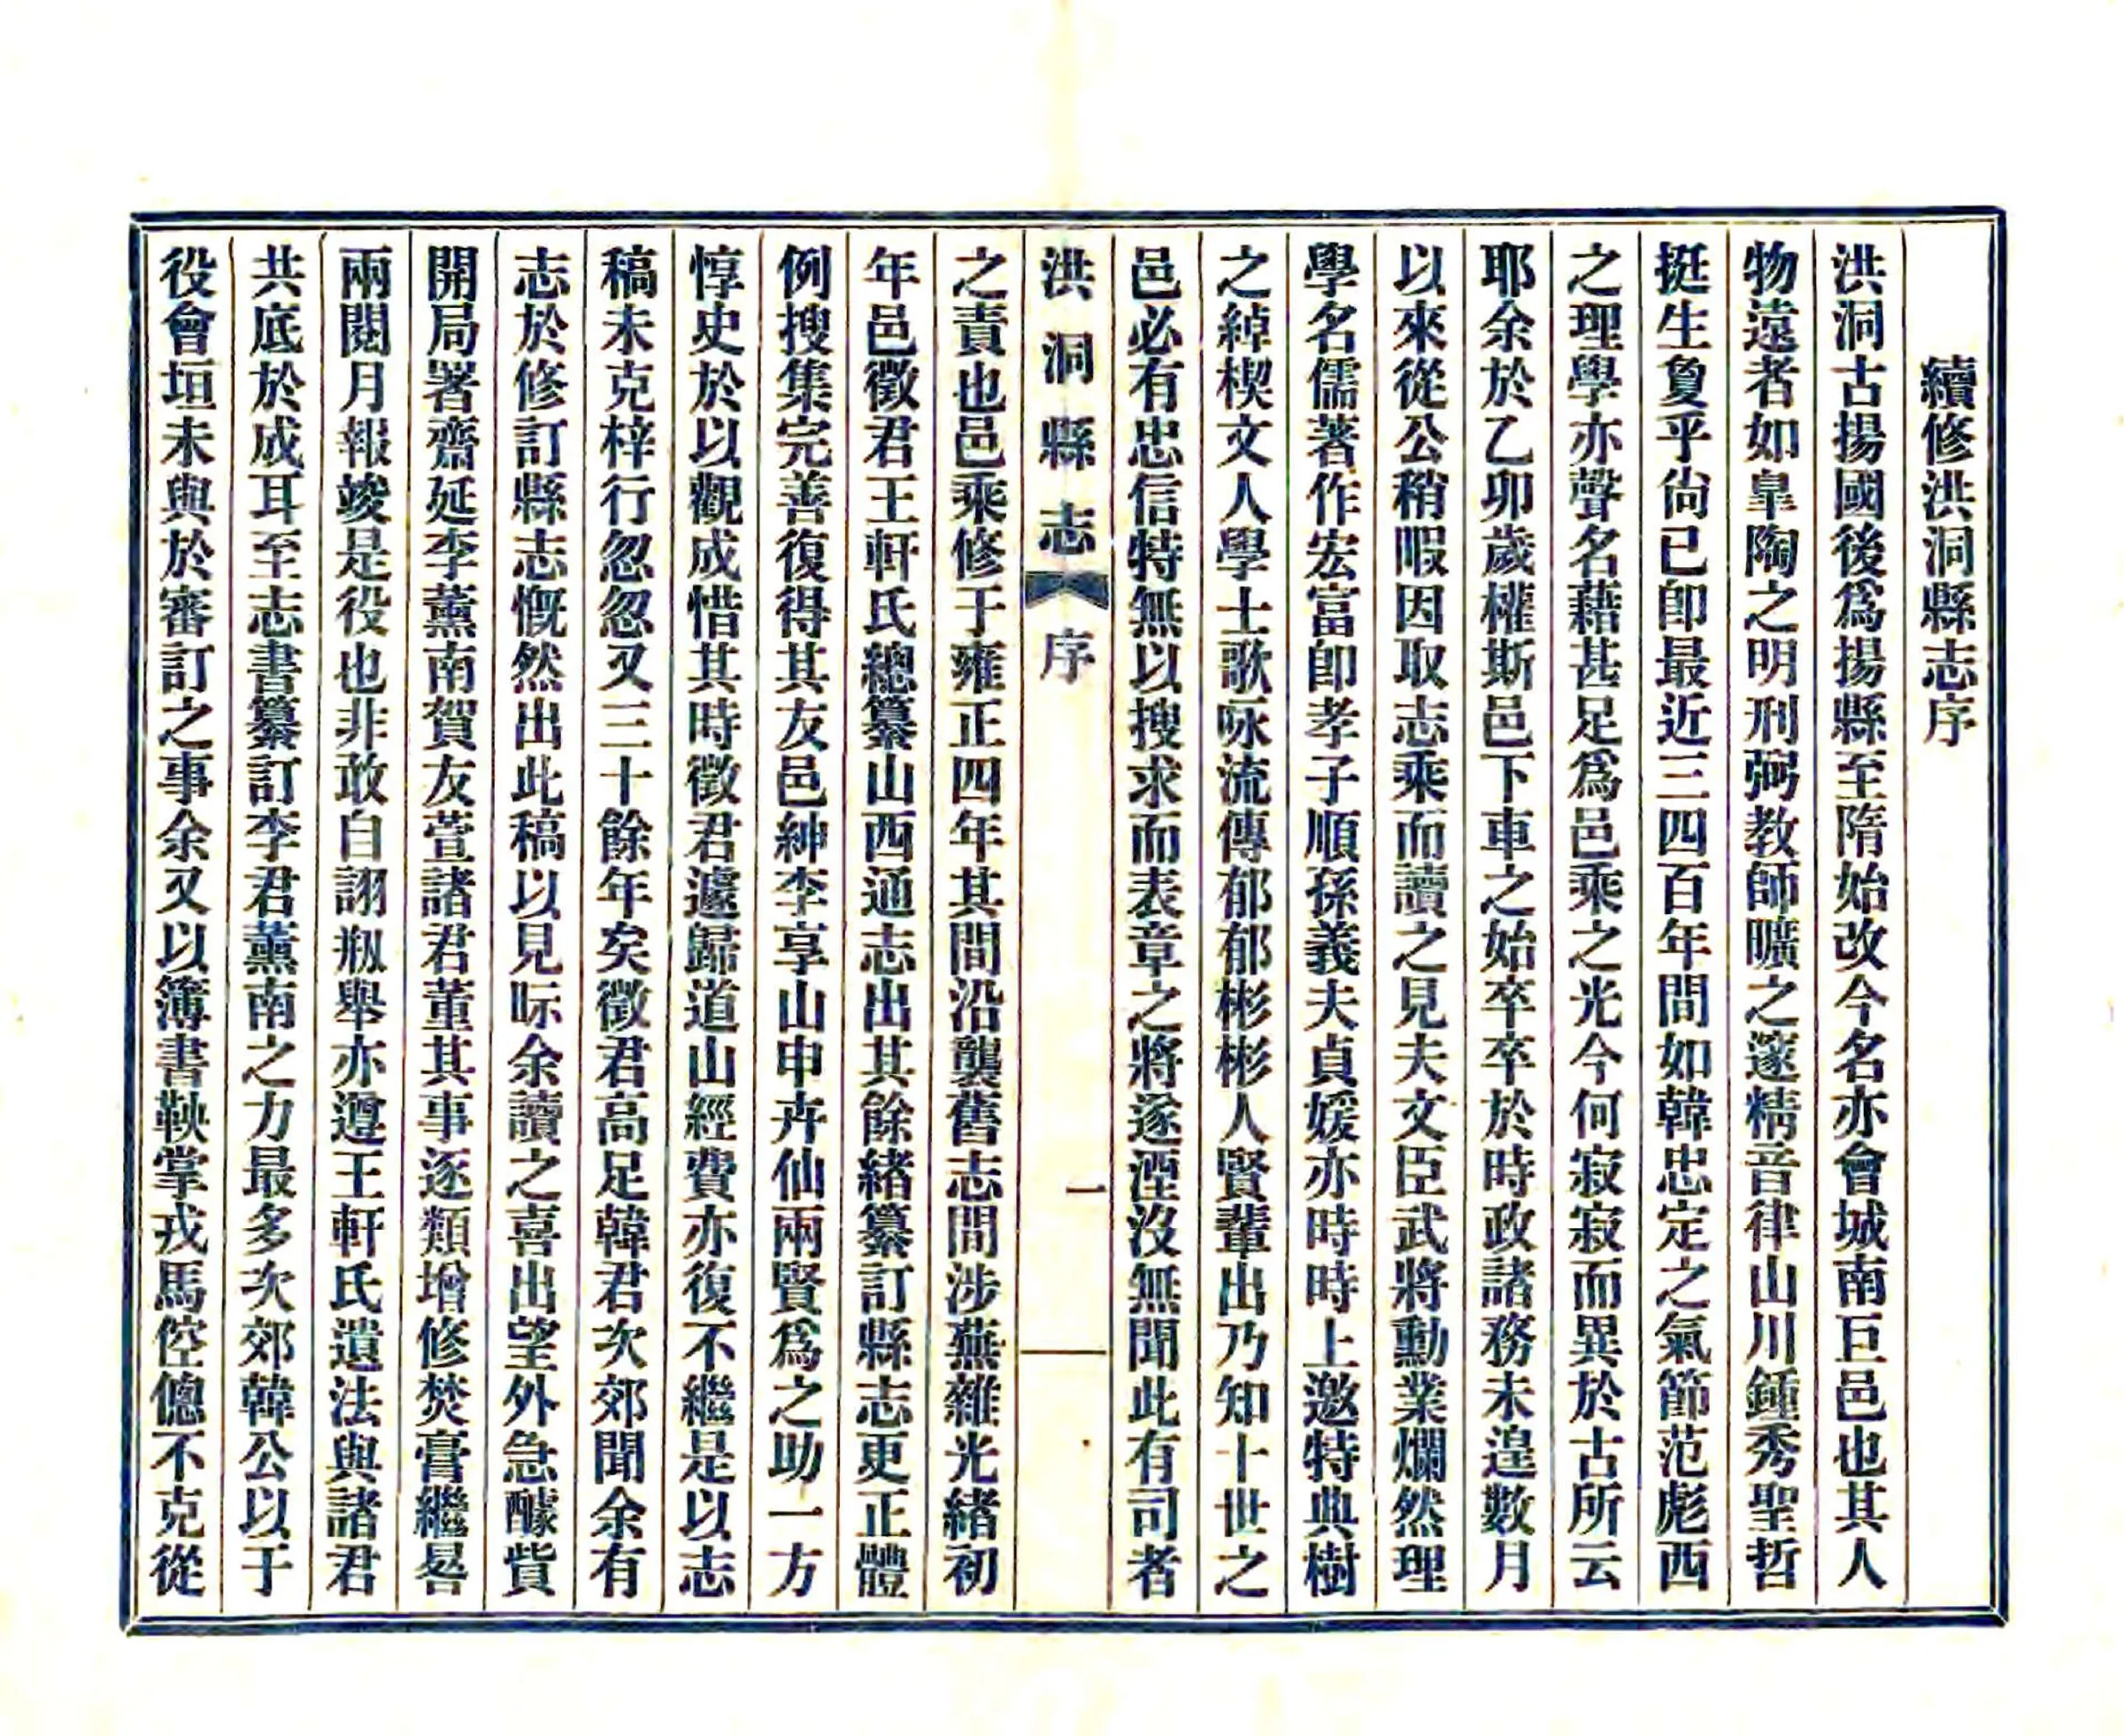 續修洪洞縣志序
洪洞古揚國後爲揚縣至隋始改今名亦會城南巨邑也其人
物遠者如皐陶之明刑弼教師曠之邃精音律山川鍾秀聖哲
挺生敻乎尙已卽最近三四百年間如韓忠定之氣節范彪西
之理學亦聲名藉甚足爲邑乘之光今何寂寂而異於古所云
耶余於乙卯歲權斯邑下車之始卒卒於時政諸務未遑數月
以來從公稍暇因取志乘而讀之見夫文臣武將勳業爛然理
學名儒著作宏富卽孝子順孫義夫貞媛亦時時上邀特典樹
之綽楔文人學士歌咏流傳郁郁彬彬人賢輩出乃知十世之
邑必有忠信特無以搜求而表章之將遂湮沒無聞此有司者
洪洞縣志 序 一
之責也邑乘修于雍正四年其間沿襲舊志間涉蕪雜光緒初
年邑徵君王軒氏總纂山西通志出其餘緒纂訂縣志更正體
例搜集完善復得其友邑紳李享山申卉仙兩賢爲之助一方
惇史於以觀成惜其時徵君遽歸道山經費亦復不繼是以志
稿未克梓行忽忽又三十餘年矣徵君高足韓君次郊聞余有
志於修訂縣志慨然出此稿以見眎余讀之喜出望外急醵貲
開局署齋延李薰南賀友萱諸君董其事逐類增修焚膏繼晷
兩閱月報竣是役也非敢自詡剙舉亦遵王軒氏遺法與諸君
共底於成耳至志書纂訂李君薰南之力最多次郊韓公以于
役會垣未與於審訂之事余又以簿書鞅掌戎馬倥傯不克從